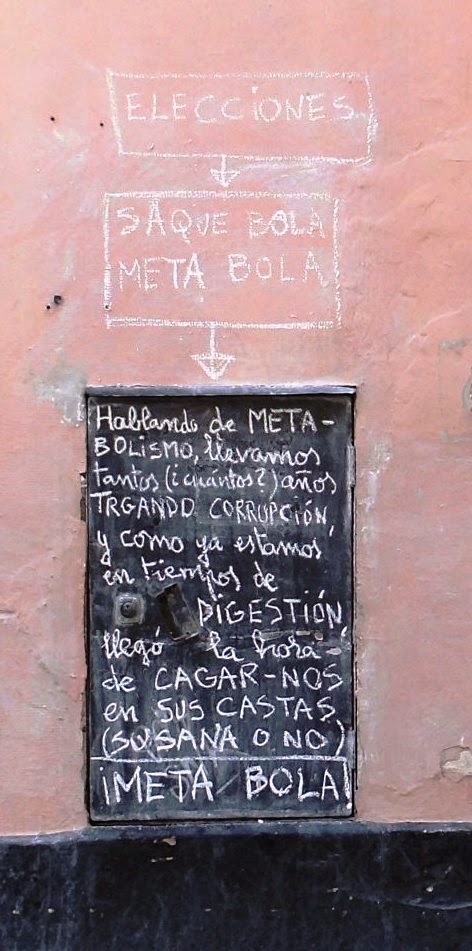 ELECCIONES
SAQUE BOLA
META BOLA
Hablando de META-
BOLISMO, llevamos
tantos (¿cuántos?) años
TRGANDO CORRUPCIÓN,
y como ya estamos
en tiempos de
DIGESTIÓN,
llegó la hora
de CAGAR-NOS
en SUS CASTAS
(SUSANA O NO)
¡META BOLA!